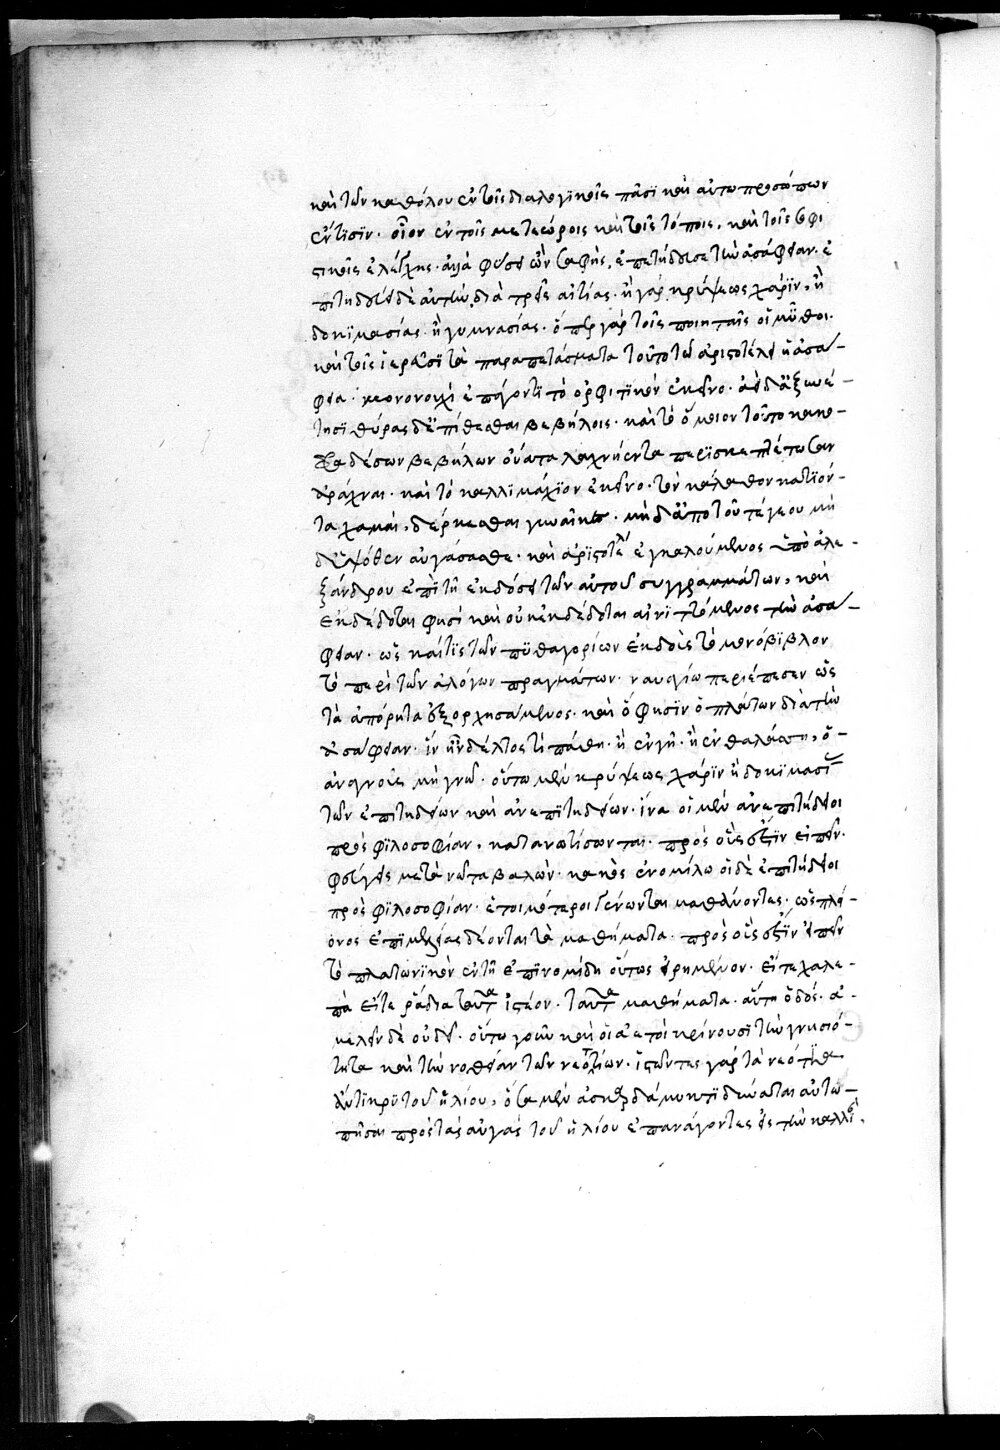 καὶ τῶν καθόλου ἐν τοῖς διαλογϊκοῖς πᾶσϊ καὶ αὐτοπροσώπων
ἔν τϊσϊν· οἷον ἐν τοῖς μετεώροις καὶ τοῖς τόποις, καὶ τοῖς σοφι
στικοῖς ἐλέγχοις· ἀλλὰ φύσει ὢν σαφὴς, ἐπετήδευσε τὴν ἀσάφειαν· ἐ
πιτηδεύει δὲ αὐτὴν διὰ τρεῖς αἰτίας· ἢ γὰρ κρύψεως χάρϊν, ἢ
δοκϊμασίας· ἢ γυμνασίας· ὅπερ γὰρ τοῖς ποιηταῖς οἱ μῦθοι·
καὶ τοῖς ἱερεῦσϊ τὰ παραπετάσματα τοῦτο τῶ ἀριστοτέλει ἡ ἀσά-
φεια· μονονουχὶ ἐπάγοντϊ τὸ ὀρφιτϊκὸν ἐκεῖνο· ἀείδω ξυνέ-
τοισϊ θύρας δ' ἐπίθεσθαι βεβήλοις· καὶ τὸ ὅμοιον τοῦτο κακο-
δέσων βεβήλων οὔατα λαχνήεντα περϊσκεπέτωσαν
ἀράχναι· καὶ τὸ καλλϊμάχϊον ἐκεῖνο· τὸν κάλαθον κατϊόν-
τα χαμαὶ, δέρκεσθαι γυναῖκες· μὴ δ' ἀπὸ τοῦ τέγεου μὴ
δ' ὑψόθεν αὐγάσασθε· καὶ ἀριστοτέλης ἐγκαλούμενος ὑπὸ ἀλε-
ξάνδρου ἐπὶ τῆ ἐκδόσει τῶν αὐτοῦ συγγραμμάτων, καὶ
ἐκδέδοται φησὶ καὶ οὐκ ἐκδέδοται αἰνιττόμενος τὴν ἀσά-
φειαν· ὡς καί τϊς τῶν πϋθαγορίων ἐκδοὺς τὸ μονόβϊβλον
τὸ περὶ τῶν ἀλόγων πραγμάτων· ναυαγίω περιέπεσεν ὡς
τὰ ἀπόρρητα ἐξορχησάμενος· καὶ ὅ φησϊν ὁ πλάτων διὰ τὴν
ἀσάφειαν· ἵν ἢν δέλτος τὶ πάθη· ἢ ἐν γῆ· ἢ ἐν θαλάσση, ὁ-
ἀναγνοὺς μὴ γνῶ· οὕτω μὲν κρύψεως χάρϊν ἢ δοκϊμασίας
τῶν ἐπιτηδείων καὶ ἀνεπϊτηδείων· ἵνα οἱ μὲν ἀνεπιτήδειοι
πρὸς φϊλοσοφίαν, κατανωτίσωνται· πρὸς οὓς ἐστϊν εἰπεῖν·
φεύγεις μετὰ νῶτα βαλὼν· κακὸς ἐν ὁμίλω οἱ δὲ ἐπιτήδειοι
πρὸς φϊλοσοφίαν· ἑτοιμότεροι γένωνται μαθόντες, ὡς πλεί
ονος ἐπϊμελείας δέονται τὰ μαθήματα· πρὸς οὓς ἐστϊν εἰπεῖν
τὸ πλατωνϊκὸν ἐν τῆ ἐπϊνομίδη οὕτως εἰρημένον· εἴτε χαλε-
πὰ εἴτε ῥάδια ταῦτα ἰτέον· ταῦτα μαθήματα· αὕτη ὁδός· ἀ-
μελεῖν δὲ οὐ δεῖ· οὕτω γοῦν καὶ οἱ ἀετοὶ κρίνουσϊ τὴν γνησιό-
τητα καὶ τὴν νοθείαν τῶν νεοττίων· ἱστῶντες γὰρ τὰ νεόττϊα
ἀντϊκρὺ τοῦ ἡλίου, ὅσα μὲν ἀσκαρδάμυκτϊ δεδύνηται ἀντω-
πῆσαι πρὸς τὰς αὐγὰς τοῦ ἡλίου ἐπανάγοντες εἰς τὴν καλλιὰν.